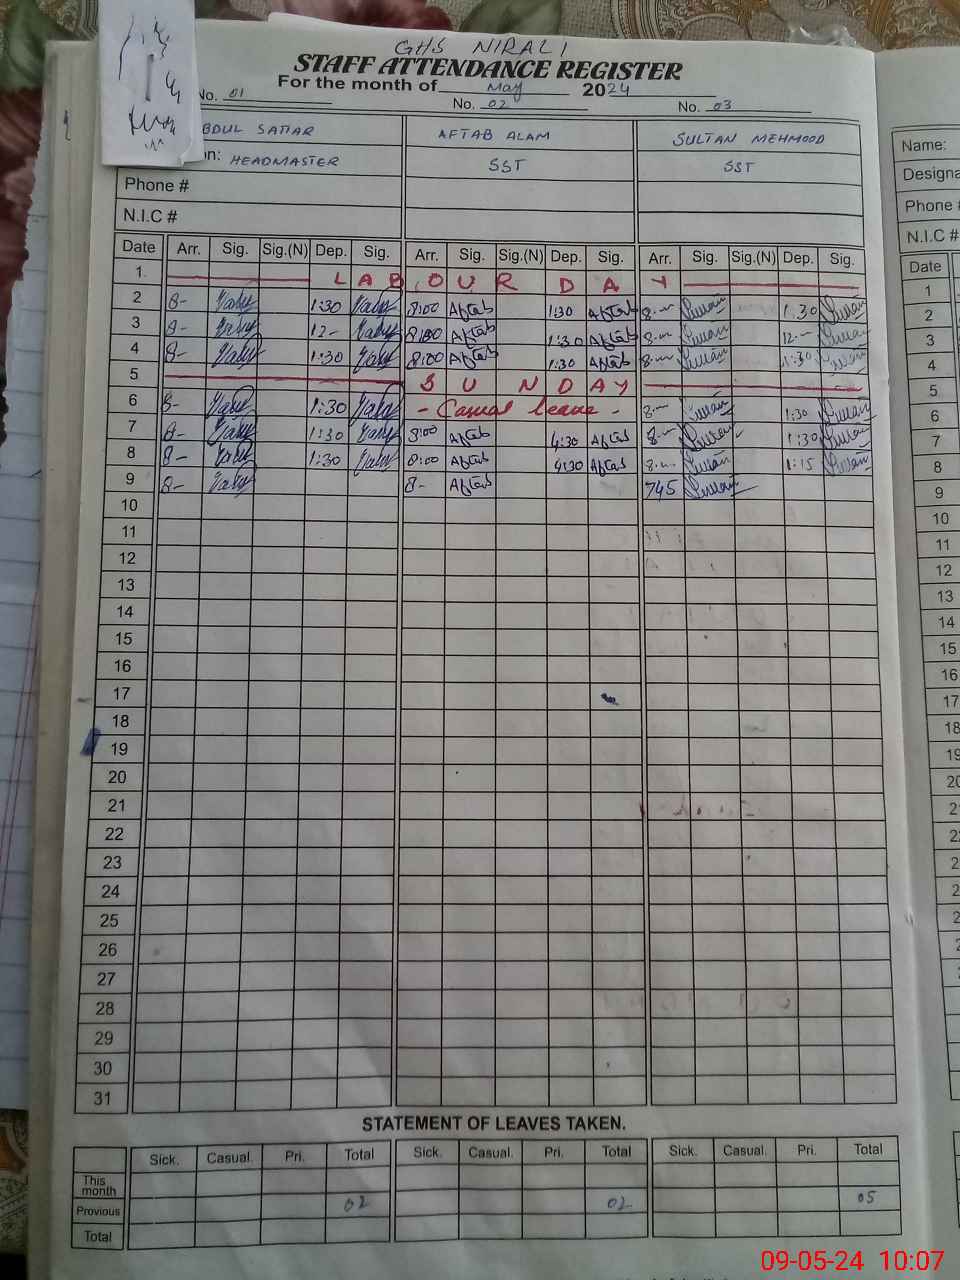 GHS NIRALI
STAFF ATTENDANCE REGISTER
For the month of May 2024
No. 01 No. 02 No. 03
BDUL SATTAR AFTAB ALAM SULTAN MEHMOOD Name:
on: HEADMASTER SST SST Designa
Phone # Phone #
N.I.C # N.I.C #
Date Arr. Sig. Sig.(N) Dep. Sig. Arr. Sig. Sig.(N) Dep. Sig. Arr. Sig. Sig.(N) Dep. Sig. Date
1. LABOUR DAY 1
2 8- 1:30 8:00 Aftab 1:30 Aftab 8.- 1:30 2
3 8- 12- 8:00 Aftab 1:30 Aftab 8.- 12- 3
4 8- 1:30 8:00 Aftab 1:30 Aftab 8.- 1:30 4
5 SUNDAY 5
6 8- 1:30 - Casual leave - 8.- 1:30 6
7 8- 1:30 8:00 Aftab 4:30 Aftab 8- 1:30 7
8 8- 1:30 8:00 Aftab 4:30 Aftab 8.- 1:15 8
9 8- 8- Aftab 745 9
10 10
11 11
12 12
13 13
14 14
15 15
16 16
17 17
18 18
19
20
21
22
23
24
25
26
27
28
29
30
31
STATEMENT OF LEAVES TAKEN.
Sick. Casual. Pri. Total Sick. Casual. Pri. Total Sick. Casual. Pri. Total
This month
Previous 02 02 05
Total
09-05-24 10:07